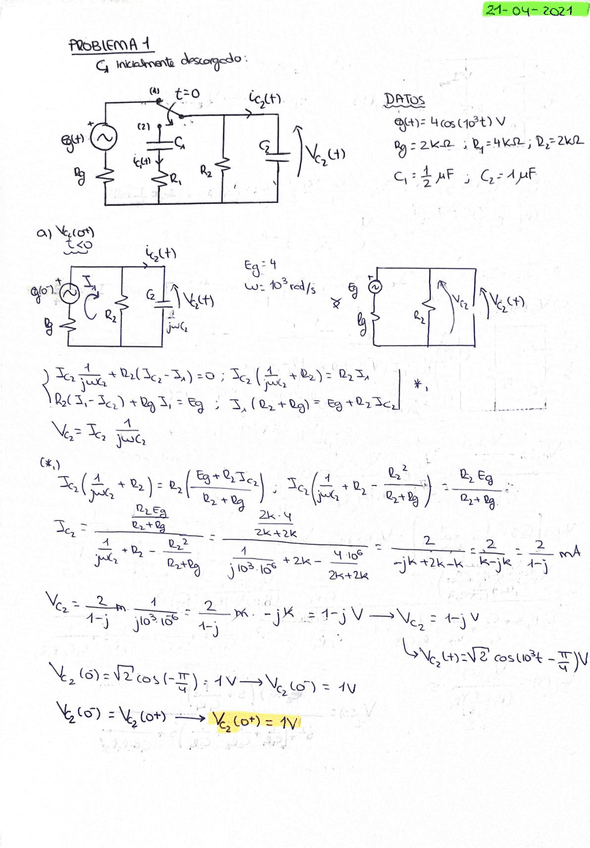 21-04-2021
PROBLEMA 1
C₁ inicialmente descargado:
(1) t=0 i_C₂(t)
(2)
eg(t) + C₁ i_C₁(t) R₁ R₂ C₂ V_C₂(t)
Rg
DATOS
eg(t) = 4cos(10³t) V
Rg = 2kΩ ; R₁ = 4kΩ ; R₂ = 2kΩ
C₁ = 1/2 μF ; C₂ = 1 μF
a) V_C₂(0+)
t<0
i_C₂(t)
+ I₁ R₂ C₂ V_C₂(t)
Rg 1/jωC₂
Eg = 4
ω = 10³ rad/s
Eg + Rg R₂ V_C₂ V_C₂(t)
I_C₂ 1/jωC₂ + R₂(I_C₂ - I₁) = 0 ; I_C₂(1/jωC₂ + R₂) = R₂I₁
R₂(I₁ - I_C₂) + Rg I₁ = Eg ; I₁(R₂ + Rg) = Eg + R₂I_C₂ *₁
V_C₂ = I_C₂ 1/jωC₂
(*₁)
I_C₂(1/jωC₂ + R₂) = R₂((Eg + R₂I_C₂)/(R₂ + Rg)) ; I_C₂(1/jωC₂ + R₂ - R₂²/(R₂+Rg)) = R₂Eg/(R₂+Rg)
I_C₂ = (R₂Eg/(R₂+Rg))/(1/jωC₂ + R₂ - R₂²/(R₂+Rg)) = (2k·4/(2k+2k))/(1/(j10³·10⁻⁶) + 2k - 4·10⁶/(2k+2k)) = 2/(-jk+2k-k) = 2/(k-jk) = 2/(1-j) mA
V_C₂ = 2/(1-j) m · 1/(j10³·10⁻⁶) = 2/(1-j) m · -jk = 1-j V → V_C₂ = 1-j V
↳ V_C₂(t) = √2 cos(10³t - π/4) V
V_C₂(0) = √2 cos(-π/4) = 1V → V_C₂(0⁻) = 1V
V_C₂(0⁻) = V_C₂(0+) → V_C₂(0+) = 1V